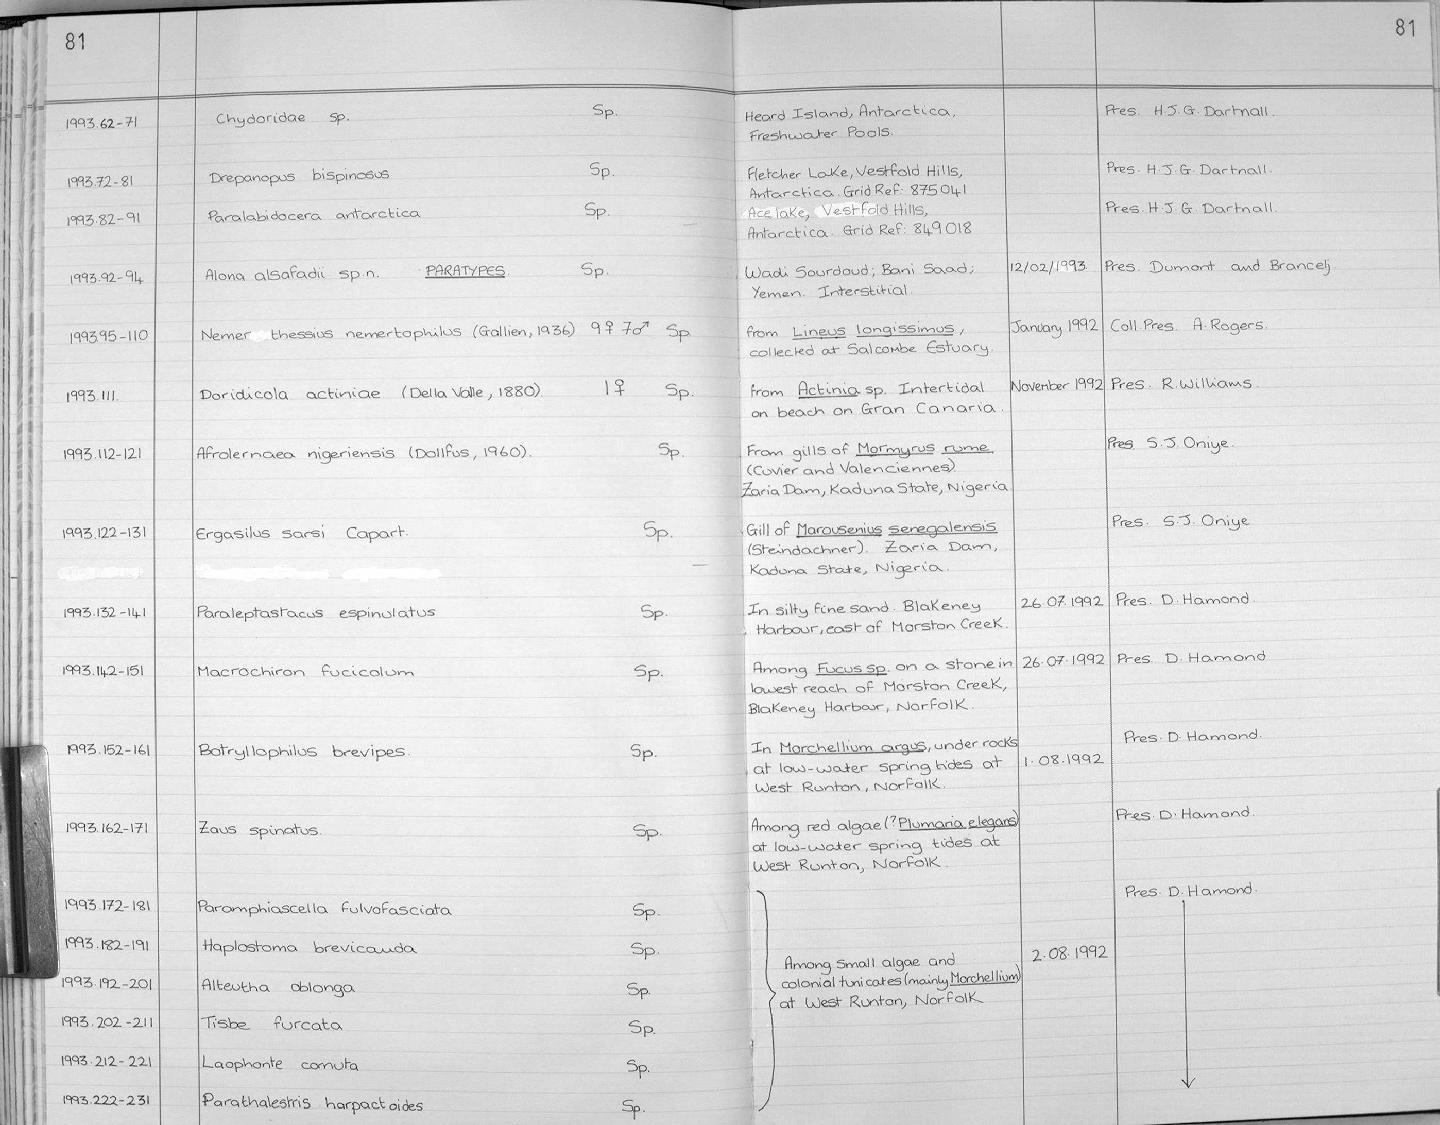 81
81
1993.62-71 Chydoridae sp. Sp. Heard Island, Antarctica, Pres. H.J.G. Dartnall.
Freshwater Pools.
1993.72-81 Drepanopus bispinosus Sp. Fletcher Lake, Vestfold Hills, Pres. H.J.G. Dartnall.
Antarctica. Grid Ref: 875041
1993.82-91 Paralabidocera antarctica Sp. Ace lake, Vestfold Hills, Pres. H.J.G. Dartnall.
Antarctica. Grid Ref: 849018
1993.92-94 Alona alsafadii sp.n. PARATYPES Sp. Wadi Sourdoud; Bani Saad; 12/02/1993 Pres. Dumont and Brancelj
Yemen. Interstitial.
199395-110 Nemer thessius nemertophilus (Gallien, 1936) 9♀ 7♂ Sp. from Lineus longissimus, January 1992 Coll. Pres. A. Rogers.
collected at Salcombe Estuary.
1993.111. Doridicola actiniae (Della Valle, 1880) 1♀ Sp. from Actinia sp. Intertidal November 1992 Pres. R. Williams.
on beach on Gran Canaria.
1993.112-121 Afrolernaea nigeriensis (Dollfus, 1960). Sp. From gills of Mormyrus rume Pres S.J. Oniye.
(Cuvier and Valenciennes)
Zaria Dam, Kaduna State, Nigeria
1993.122-131 Ergasilus sarsi Capart. Sp. Gill of Marousenius senegalensis Pres. S.J. Oniye
(Steindachner). Zaria Dam,
Kaduna State, Nigeria.
1993.132-141 Paraleptastacus espinulatus Sp. In silty fine sand. Blakeney 26.07.1992 Pres. D. Hamond.
Harbour, east of Morston Creek.
1993.142-151 Macrochiron fucicolum Sp. Among Fucus sp. on a stone in 26.07.1992 Pres. D. Hamond
lowest reach of Morston Creek,
Blakeney Harbour, Norfolk.
1993.152-161 Botryllophilus brevipes. Sp. In Morchellium argus, under rocks Pres. D. Hamond.
at low-water spring tides at 1.08.1992
West Runton, Norfolk.
1993.162-171 Zaus spinatus. Sp. Among red algae (?Plumaria elegans) Pres. D. Hamond.
at low-water spring tides at
West Runton, Norfolk.
1993.172-181 Paramphiascella fulvofasciata Sp. Pres. D. Hamond.
1993.182-191 Haplostoma brevicauda Sp. Among small algae and 2.08.1992
colonial tunicates (mainly Morchellium)
1993.192-201 Alteutha oblonga Sp. at West Runton, Norfolk
1993.202-211 Tisbe furcata Sp.
1993.212-221 Laophonte cornuta Sp.
1993.222-231 Parathalestris harpactoides Sp.